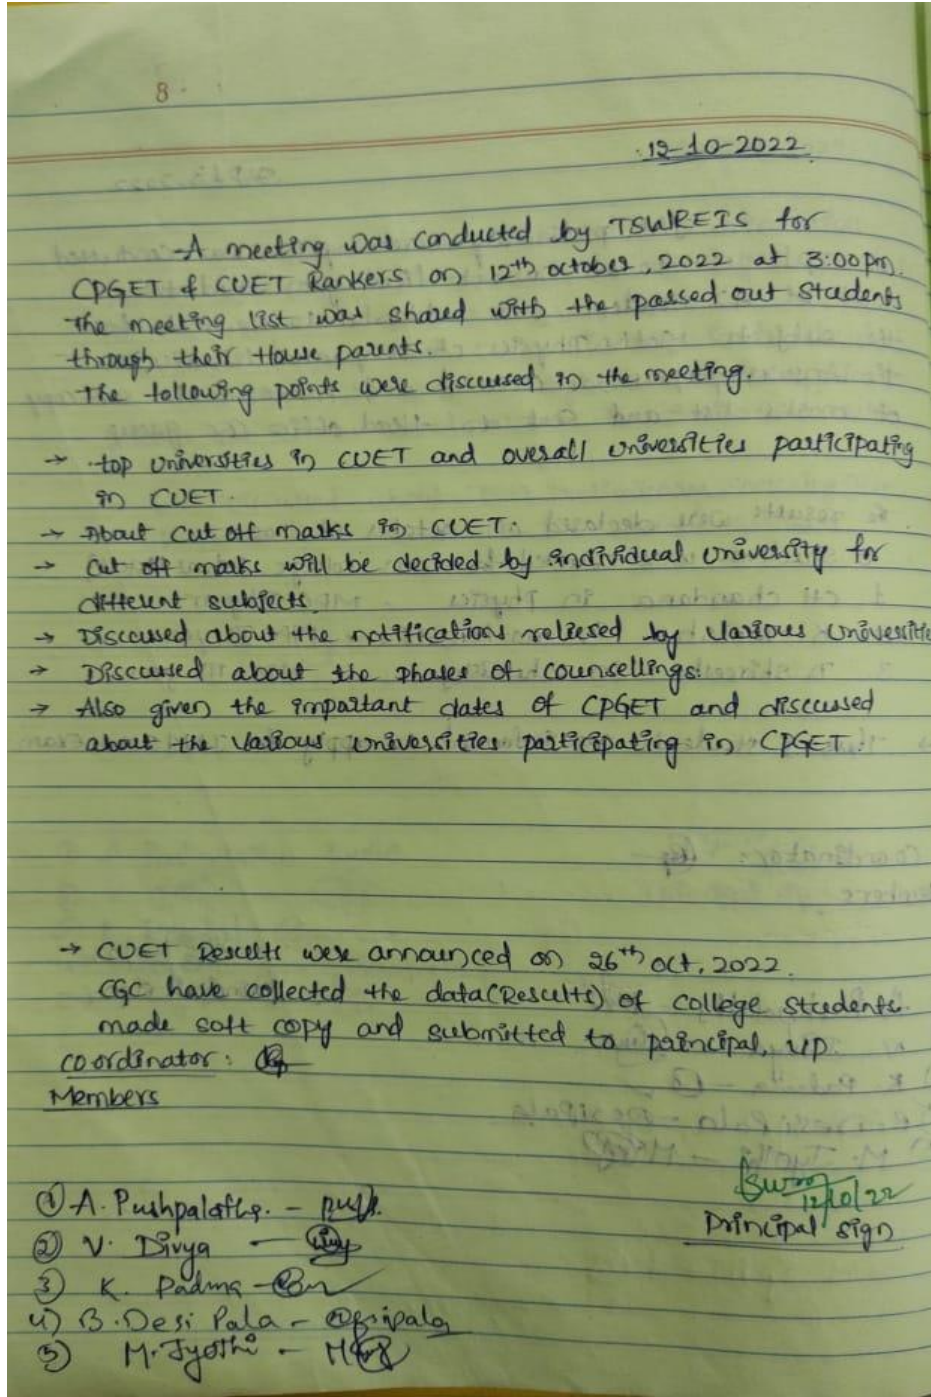 8.
12-10-2022
A meeting was conducted by TSWREIS for
CPGET & CUET Rankers on 12th october, 2022 at 3:00pm.
The meeting list was shared with the passed out students
through their House parents.
The following points were discussed in the meeting.
→ top universities in CUET and overall universities participating
in CUET.
→ About cut off marks in CUET.
→ Cut off marks will be decided by individual university for
different subjects.
→ Discussed about the notifications reliesed by various universitie
→ Discussed about the phases of counsellings.
→ Also given the important dates of CPGET and discussed
about the various universities participating in CPGET.
→ CUET Results were announced on 26th oct, 2022.
CGC have collected the data(Results) of college students.
made soft copy and submitted to principal, UP
coordinator:
Members
① A. Pushpalatha. -
② V. Divya -
③ K. Padma -
4) B. Desi Pala - Desipala
⑤ M. Jyothi -
12/10/22
Principal sign